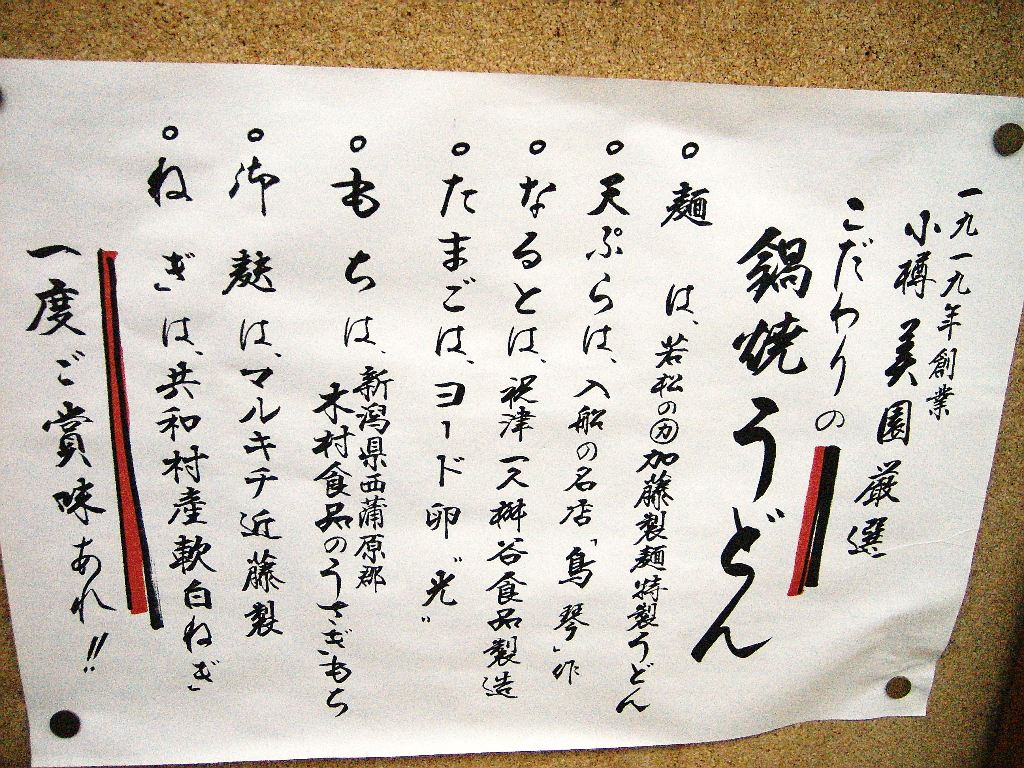 一九一九年創業
小樽 美園 厳選
こだわりの
鍋焼うどん
。麺 は、若松の㋕加藤製麺特製うどん
。天ぷらは、入船の名店「鳥琴」作
。なるとは、祝津 一久桝谷食品製造
。たまごは、ヨード卵〝光〟
。もちは、新潟県西蒲原郡
木村食品のうさぎもち
。御麩は、マルキチ近藤製
。ねぎは、共和村産軟白ねぎ
一度ご賞味あれ!!